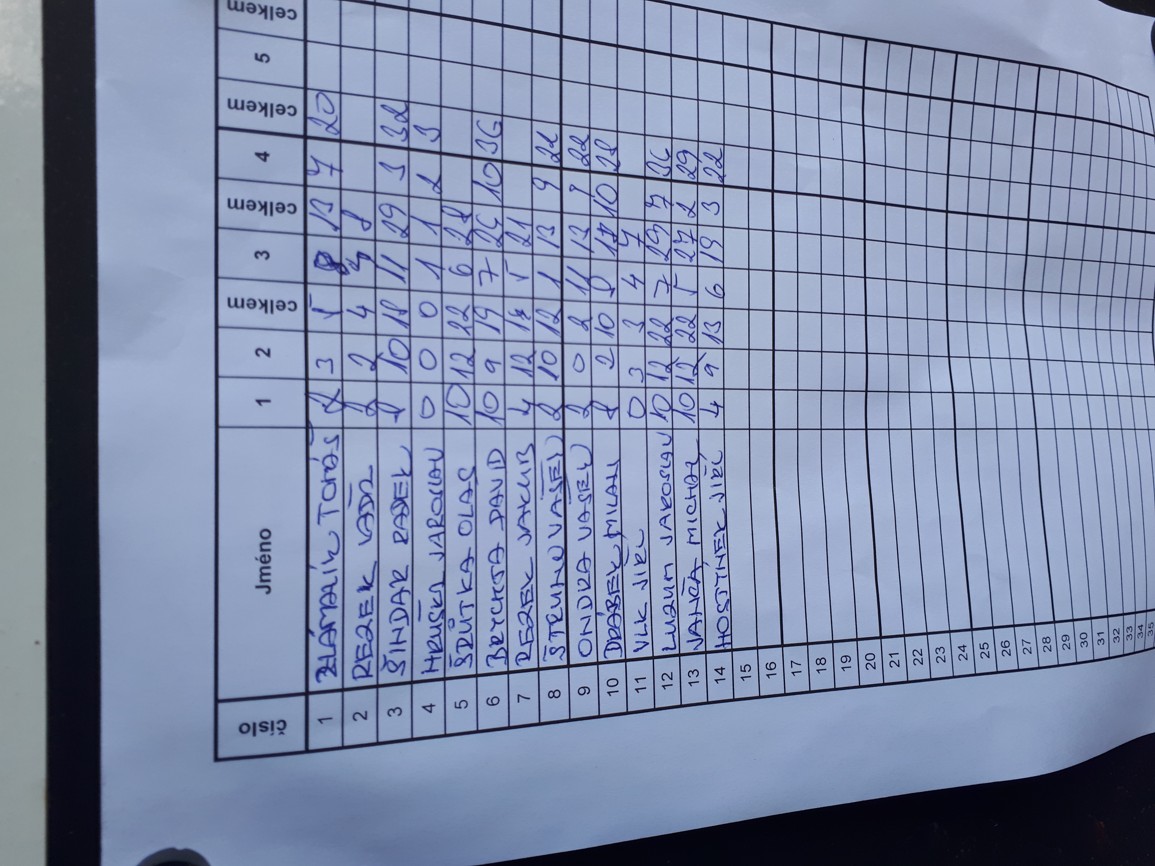 číslo Jméno 1 2 celkem 3 celkem 4 celkem 5 celkem
1 ZLÁMALÍK TOMÁŠ 2 3 5 8 13 7 20
2 REZEK 2 2 4 8
3 ŠINDAR RADEK 8 10 18 11 29 3 32
4 HRUŠKA JAROSLAV 0 0 0 1 1 2 3
5 ŠRŮTKA OLAF 10 12 22 6 28
6 BRYCHTA DAVID 10 9 19 7 26 10 36
7 REZEK JAKUB 4 12 5 21
8 VAŠEK 2 10 12 1 13 9 22
9 ONDRA VAŠEK 2 0 2 11 13 9 22
10 DRÁBEK MILAN 8 2 10 10
11 VLK JIŘÍ 0 3 3 4 7
12 JAROSLAV 10 12 22 7 29 7
13 VANČA MICHAL 10 12 22 5 27 2 29
14 HOSTYNEK JIŘÍ 4 9 13 6 19 3 22
15
16
17
18
19
20
21
22
23
24
25
26
27
28
29
30
31
32
33
34
35